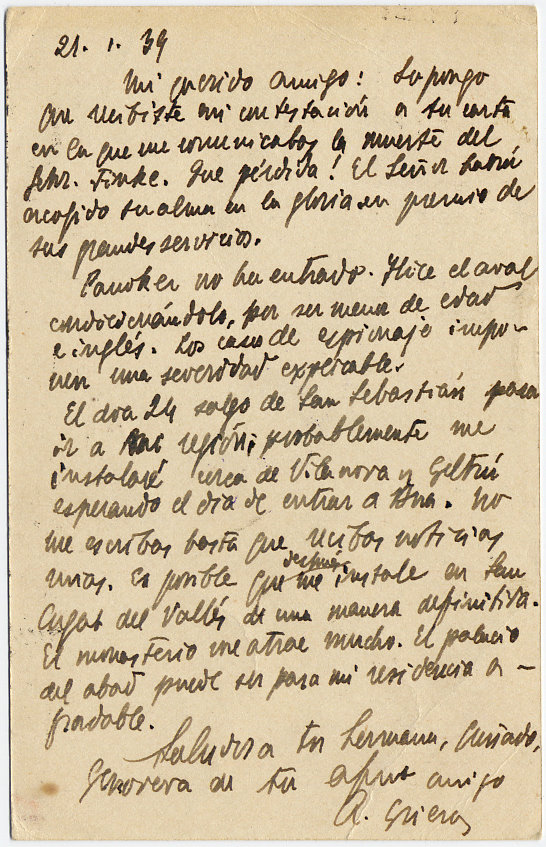 21. 1. 39
Mi querido amigo: Supongo
que recibiste mi contestación a tu carta
en la que me comunicabas la muerte del
Finke. Que pérdida! El Señor habrá
acogido su alma en la gloria en premio de
sus grandes servicios.
no ha entrado. Hice el aval
condicionándolo, por ser menor de edad
e inglés. Los casos de espionaje impo-
nen una severidad explicable.
El dia 24 salgo de San Sebastián para
ir a mi región; probablemente me
instalaré cerca de Vilanova y Geltrú
esperando el dia de entrar a Bna. No
me escribas hasta que recibas noticias
mias. Es posible que después me instale en San
Cugat del Vallés de una manera definitiva.
El monasterio me atrae mucho. El palacio
del abad puede ser para mi residencia a-
gradable.
Saludos a tu hermana, cuñado,
Genoveva de tu afmo amigo
A. Griera